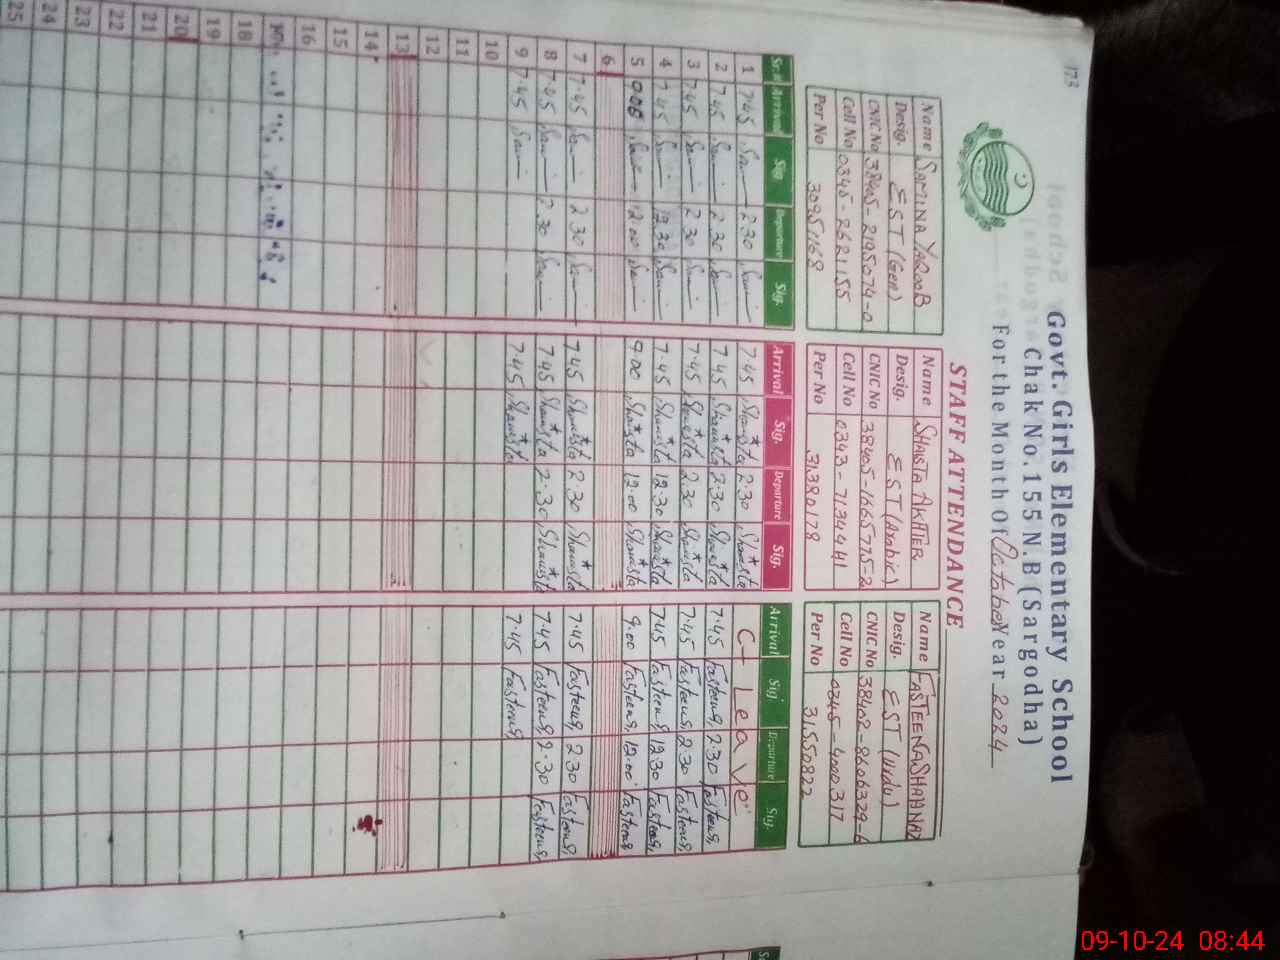 173
Govt. Girls Elementary School
Chak No. 155 N.B (Sargodha)
For the Month Of October Year 2024
STAFF ATTENDANCE
Name SAMINA YAQOOB
Desig. EST (Gen)
CNIC No 38405-2195074-0
Cell No 0345-2621155
Per No 30951168
Name SHAISTA AKHTER
Desig. EST (Arabic)
CNIC No 38405-1665775-2
Cell No 0343-7134441
Per No 31380178
Name FASTEENA SHAHNAZ
Desig. EST (Urdu)
CNIC No 38402-8606329-6
Cell No 0345-4000317
Per No 31550822
Sr.# Arrival Sig. Departure Sig. Arrival Sig. Departure Sig. Arrival Sig. Departure Sig.
1 7.45 2.30 7.45 Shaista 2.30 Shaista C-Leave
2 7.45 2.30 7.45 Shaista 2.30 Shaista 7.45 Fasteena 2.30 Fasteena
3 7.45 2.30 7.45 Shaista 2.30 Shaista 7.45 Fasteena 2.30 Fasteena
4 7.45 12.30 7.45 Shaista 12.30 Shaista 7.45 Fasteena 12.30 Fasteena
5 9.00 12.00 9.00 Shaista 12.00 Shaista 9.00 Fasteena 12.00 Fasteena
6
7 7.45 2.30 7.45 Shaista 2.30 Shaista 7.45 Fasteena 2.30 Fasteena
8 7.45 2.30 7.45 Shaista 2.30 Shaista 7.45 Fasteena 2.30 Fasteena
9 7.45 7.45 Shaista 7.45 Fasteena
10
11
12
13
14
15
16
18
19
20
21
22
23
24
25
09-10-24 08:44